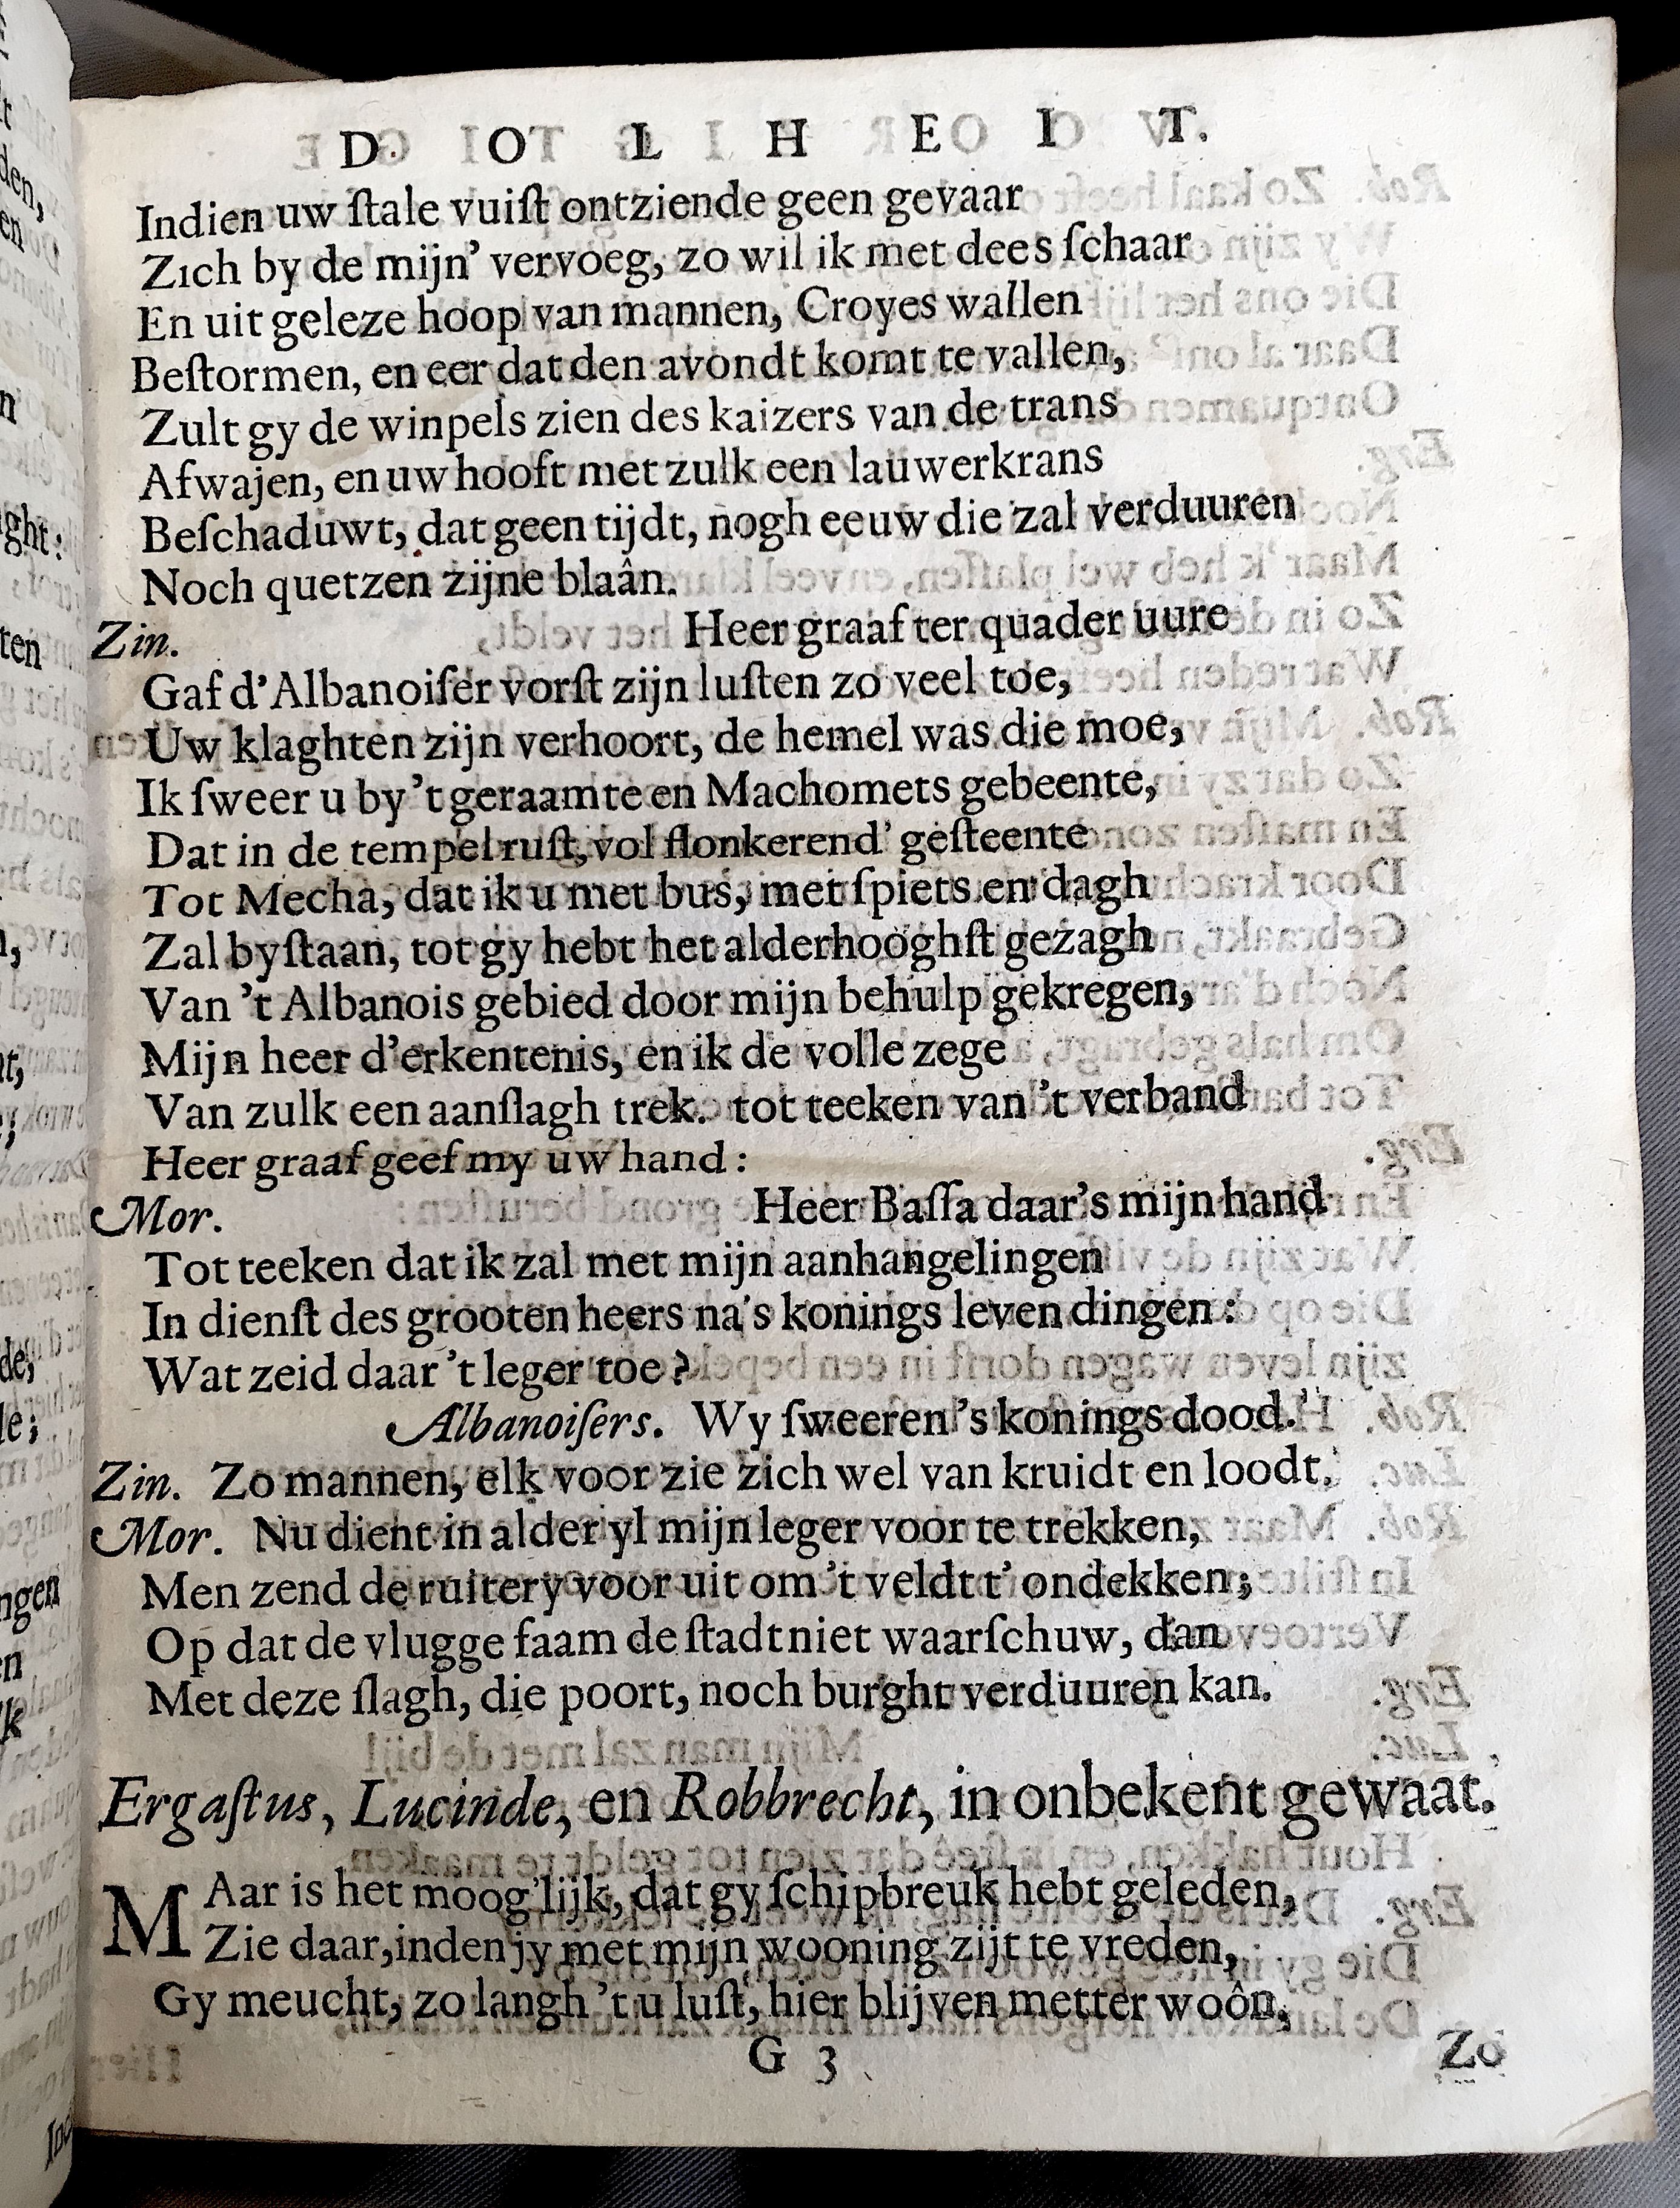 D O L H E I T.
Indien uw ſtale vuiſt ontziende geen gevaar
Zich by de mijn’ vervoeg, zo wil ik met dees ſchaar
En uit geleze hoop van mannen, Croyes wallen
Beſtormen, en eer dat den avondt komt te vallen,
Zult gy de winpels zien des kaizers van de trans
Afwajen, en uw hooft met zulk een lauwerkrans
Beſchaduwt, dat geen tijdt, nogh eeuw die zal verduuren
Noch quetzen zijne blaân.
Zin. Heer graaf ter quader uure
Gaf d’Albanoiſer vorſt zijn luſten zo veel toe,
Uw klaghten zijn verhoort, de hemel was die moe,
Ik ſweer u by ’t geraamte en Machomets gebeente,
Dat in de tempel ruſt, vol flonkerend’ geſteente
Tot Mecha, dat ik u met bus, met ſpiets en dagh
Zal byſtaan, tot gy hebt het alderhooghſt gezagh
Van ’t Albanois gebied door mijn behulp gekregen,
Mijn heer d’erkentenis, en ik de volle zege
Van zulk een aanſlagh trek. tot teeken van ’t verband
Heer graaf geef my uw hand:
Mor. Heer Baſſa daar’s mijn hand
Tot teeken dat ik zal met mijn aanhangelingen
In dienſt des grooten heers na’s konings leven dingen:
Wat zeid daar ’t leger toe?
Albanoiſers. Wy ſweeren ’s konings dood.
Zin. Zo mannen, elk voor zie zich wel van kruidt en loodt.
Mor. Nu dient in alder yl mijn leger voor te trekken,
Men zend de ruitery voor uit om ’t veldt t’ ondekken;
Op dat de vlugge faam de ſtadt niet waarſchuw, dan
Met deze ſlagh, die poort, noch burght verduuren kan.
Ergaſtus, Lucinde, en Robbrecht, in onbekent gewaat.
MAar is het moog’lijk, dat gy ſchipbreuk hebt geleden,
Zie daar, inden jy met mijn wooning zijt te vreden,
Gy meucht, zo langh ’t u luſt, hier blijven metter woôn,
G 3 Zo